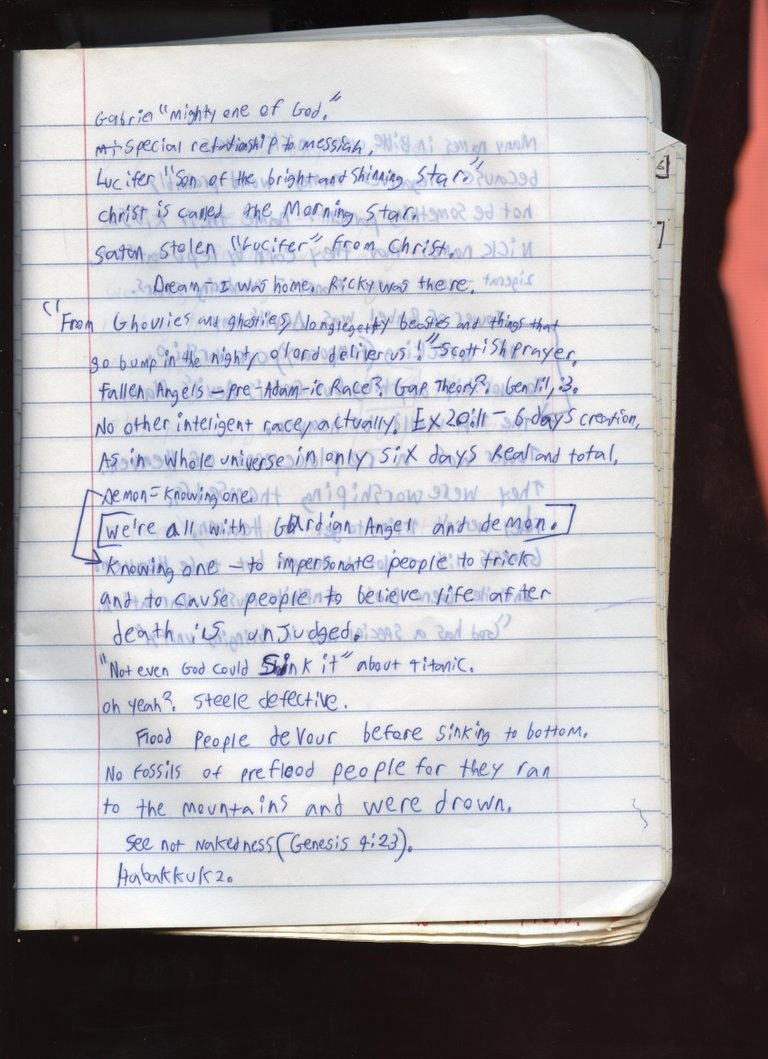 Gabriel "Mighty one of God."
special relationship to messiah.
Lucifer "Son of the bright and shinning star."
Christ is called the Morning Star.
Saton stolen "Lucifer" from Christ.
Dream - I was home. Ricky was there.
"From Ghoulies and ghosties, longlegetty beasties and things that
go bump in the night, o lord deliver us!" - Scottish Prayer.
Fallen Angels - pre-Adam-ic Race? Gap Theory? Gen 1:1, :3.
No other inteligent race, actually, Ex 20:11 - 6 days creation,
As in whole universe in only six days real and total.
Demon = Knowing one.
We're all with Gardian Angel and demon.
Knowing one - to impersonate people to trick
and to cause people to believe life after
death is unjudged.
"Not even God could Sink it" about Titanic.
oh yeah? Steele defective.
Flood people devour before sinking to bottom.
No fossils of preflood people for they ran
to the mountains and were drown.
See not Nakedness (Genesis 9:23).
Habakkuk 2.